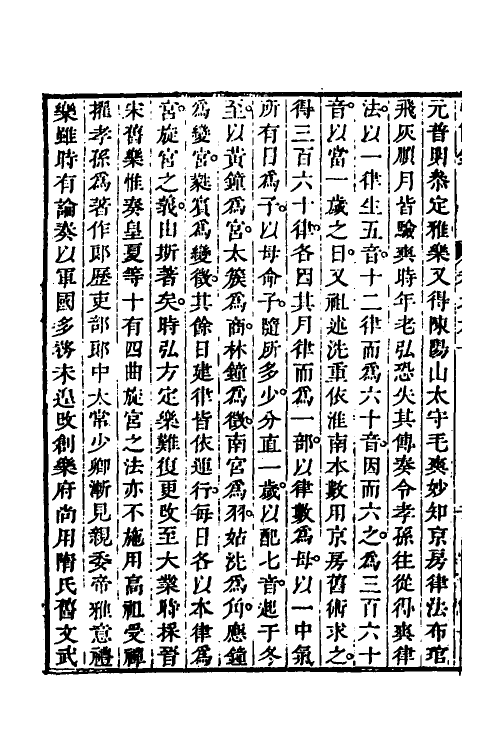 元普明叅定雅樂又得陳陽山太守毛爽妙知京房律法布琯
飛灰順月皆驗爽時年老弘恐失其傳奏令孝孫往從得爽律
法以一律生五音十二律而爲六十音因而六之爲三百六十
音以當一歲之日又祖述沈重依淮南本數用京房舊術求之
得三百六十律各因其月律而爲一部以律數爲母以一中氣
所有日爲子以母命子隨所多少分直一歲以配七音起于冬
至以黃鐘爲宮太簇爲商林鐘爲徵南宮爲羽姑洗爲角應鐘
爲變宮蕤賓爲變徵其餘日建律皆依運行每日各以本律爲
宮旋宮之義由斯著矣時弘方定樂難復更改至大業時採晉
宋舊樂惟奏皇夏等十有四曲旋宮之法亦不施用高祖受禪
擢孝孫爲著作郎歷吏部郎中太常少卿漸見親委帝雅意禮
樂雖時有論奏以軍國多務未遑改創樂府尚用隋氏舊文武